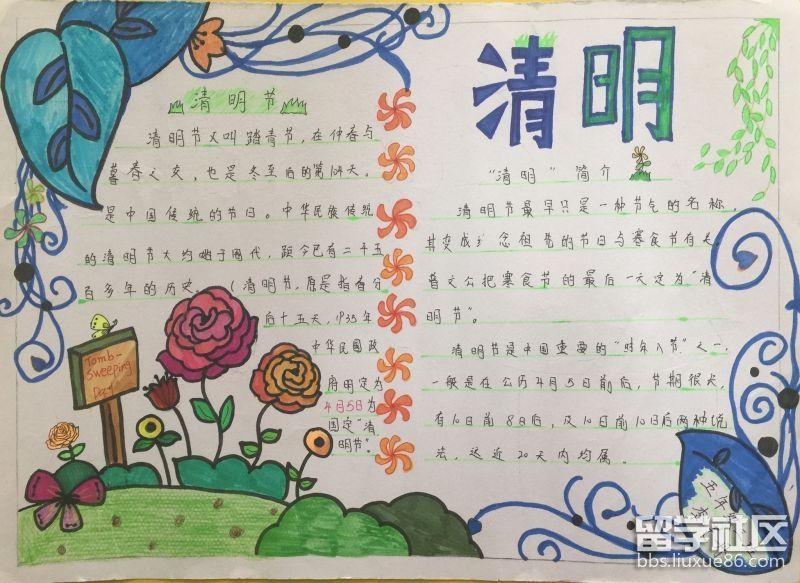 清明节
清明节又叫踏青节，在仲春与
暮春之交，也是冬至后的第104天。
是中国传统的节日。中华民族传统
的清明节大约始于周代，距今已有二千五
百多年的历史。（清明节，原是指春分
后十五天，1935年
中华民国政
府明定为
4月5日为
国定“清
明节”。
Tomb-
Sweeping
Day
清明
“清明”简介
清明节最早只是一种节气的名称，
其变成纪念祖先的节日与寒食节有关。
晋文公把寒食节的最后一天定为“清
明节”。
清明节是中国重要的“时年八节”之一，
一般是在公历4月5日前后，节期很长，
有10日前8日后，及10日前10日后两种说
法，这近20天内均属。
五年
留学社区
bbs.liuxue86.com
bbs.liuxue86.com